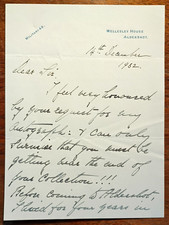 WELLESLEY HOUSE
ALDERSHOT
14th December
1932
Dear Sir
I feel very honoured
by your request for my
Autograph. I can only
surmise that you must be
getting near the end of
your Collection!!!
Before coming to Aldershot,
I lived for four years in